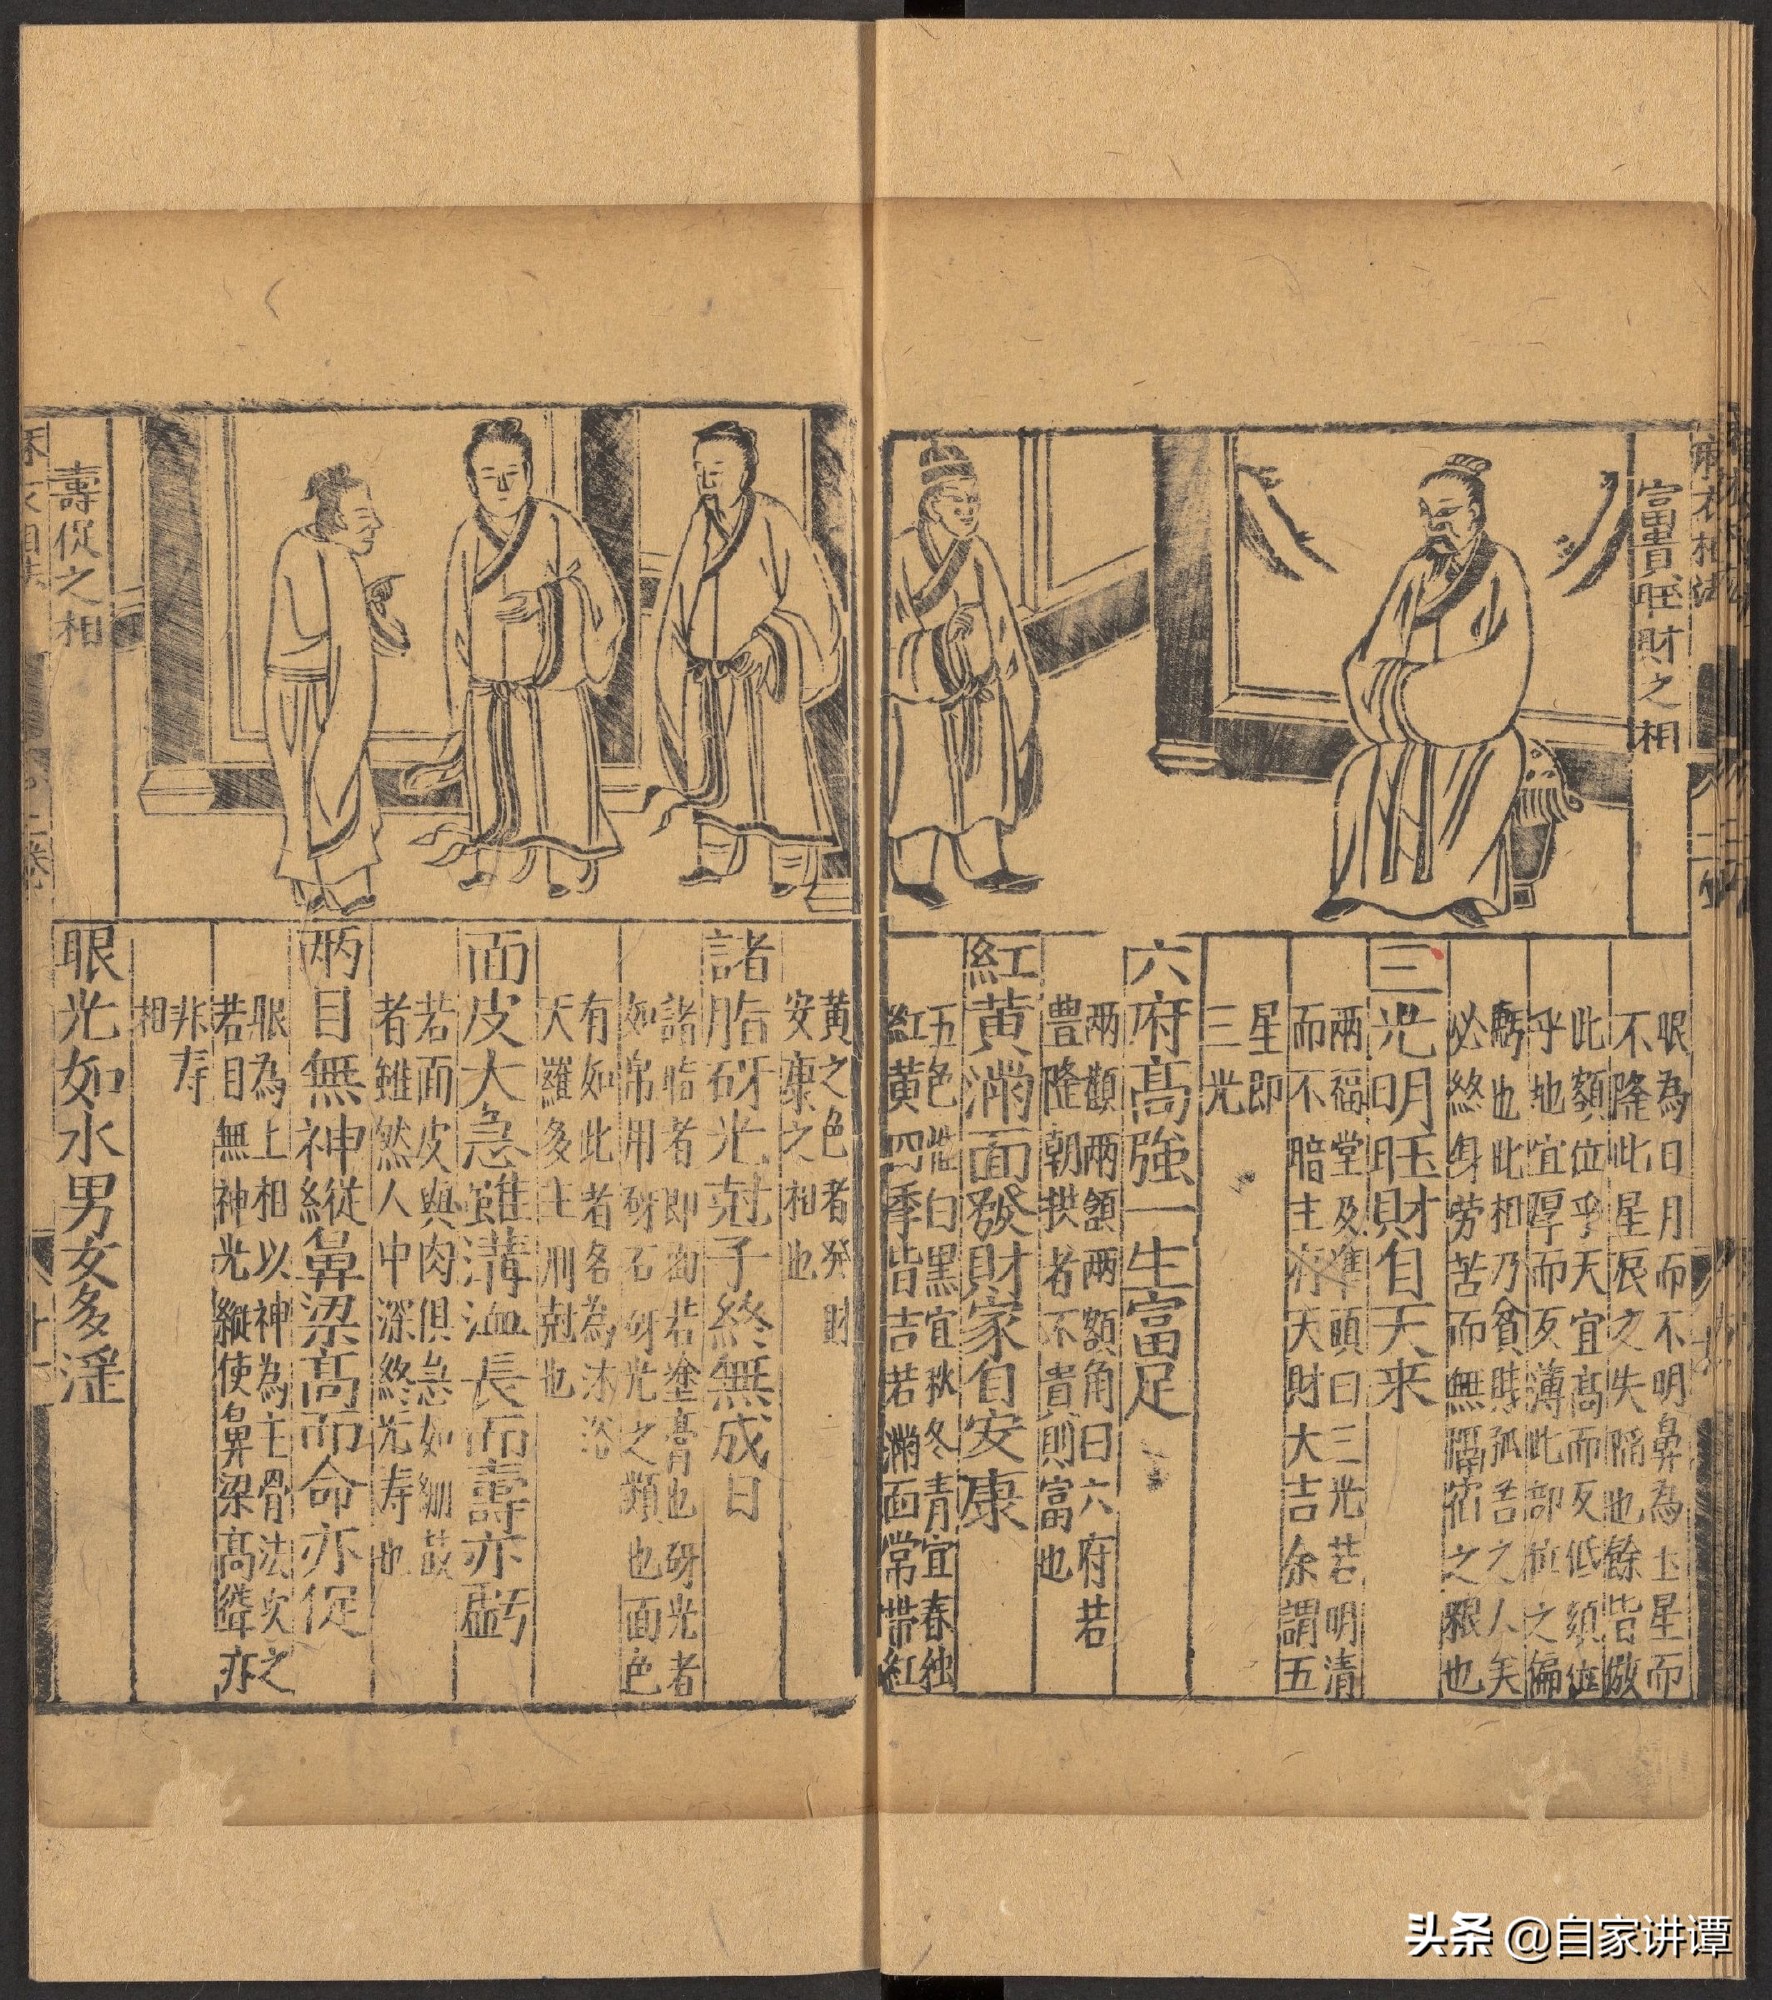 麻衣相法
富貴旺財之相
眼為日月而不明鼻為土星而
不隆此星辰之失陷也餘皆倣
此額位乎天宜高而反低頦位
乎地宜厚而反薄此部位之偏
虧也此相乃貧賤孤苦之人矣
必終身勞苦而無福宿之祿也
三光明旺財自天来
兩福堂及準頭曰三光若明清
而不暗主有天財大吉余謂五
星即
三光
六府高強一生富足
两顴两頷两額角曰六府若
豊隆朝拱者不貴則富也
紅黄滿面發財家自安康
五色惟白黑宜秋冬青宜春独
紅黄四季皆吉若滿面常帶紅
黄之色者発財
安康之相也
諸脂砑光尅子終無成日
諸脂者即面若塗膏也砑光者
如常用砑石砑光之類也面色
有如此者名為沐浴
天羅多主刑尅也
面皮大急雖溝洫長而壽亦虧
若面皮與肉俱急如绷鼓
者雖然人中深終无寿也
两目無神縱鼻梁高而命亦促
眼為上相以神為主骨法次之
若目無神光縦使鼻梁高聳亦
非寿
相
眼光如水男女多滛
壽促之相
头条 @自家讲谭